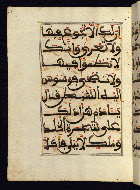 ان لك الا تجوع فيها
ولا تعرى وانك
لا تظموا فيها
ولا تضحى فوسوس
اليه الشيطن قال
يادم هل ادلك
على شجرة الخلد
وملك لا يبلى فاكلا